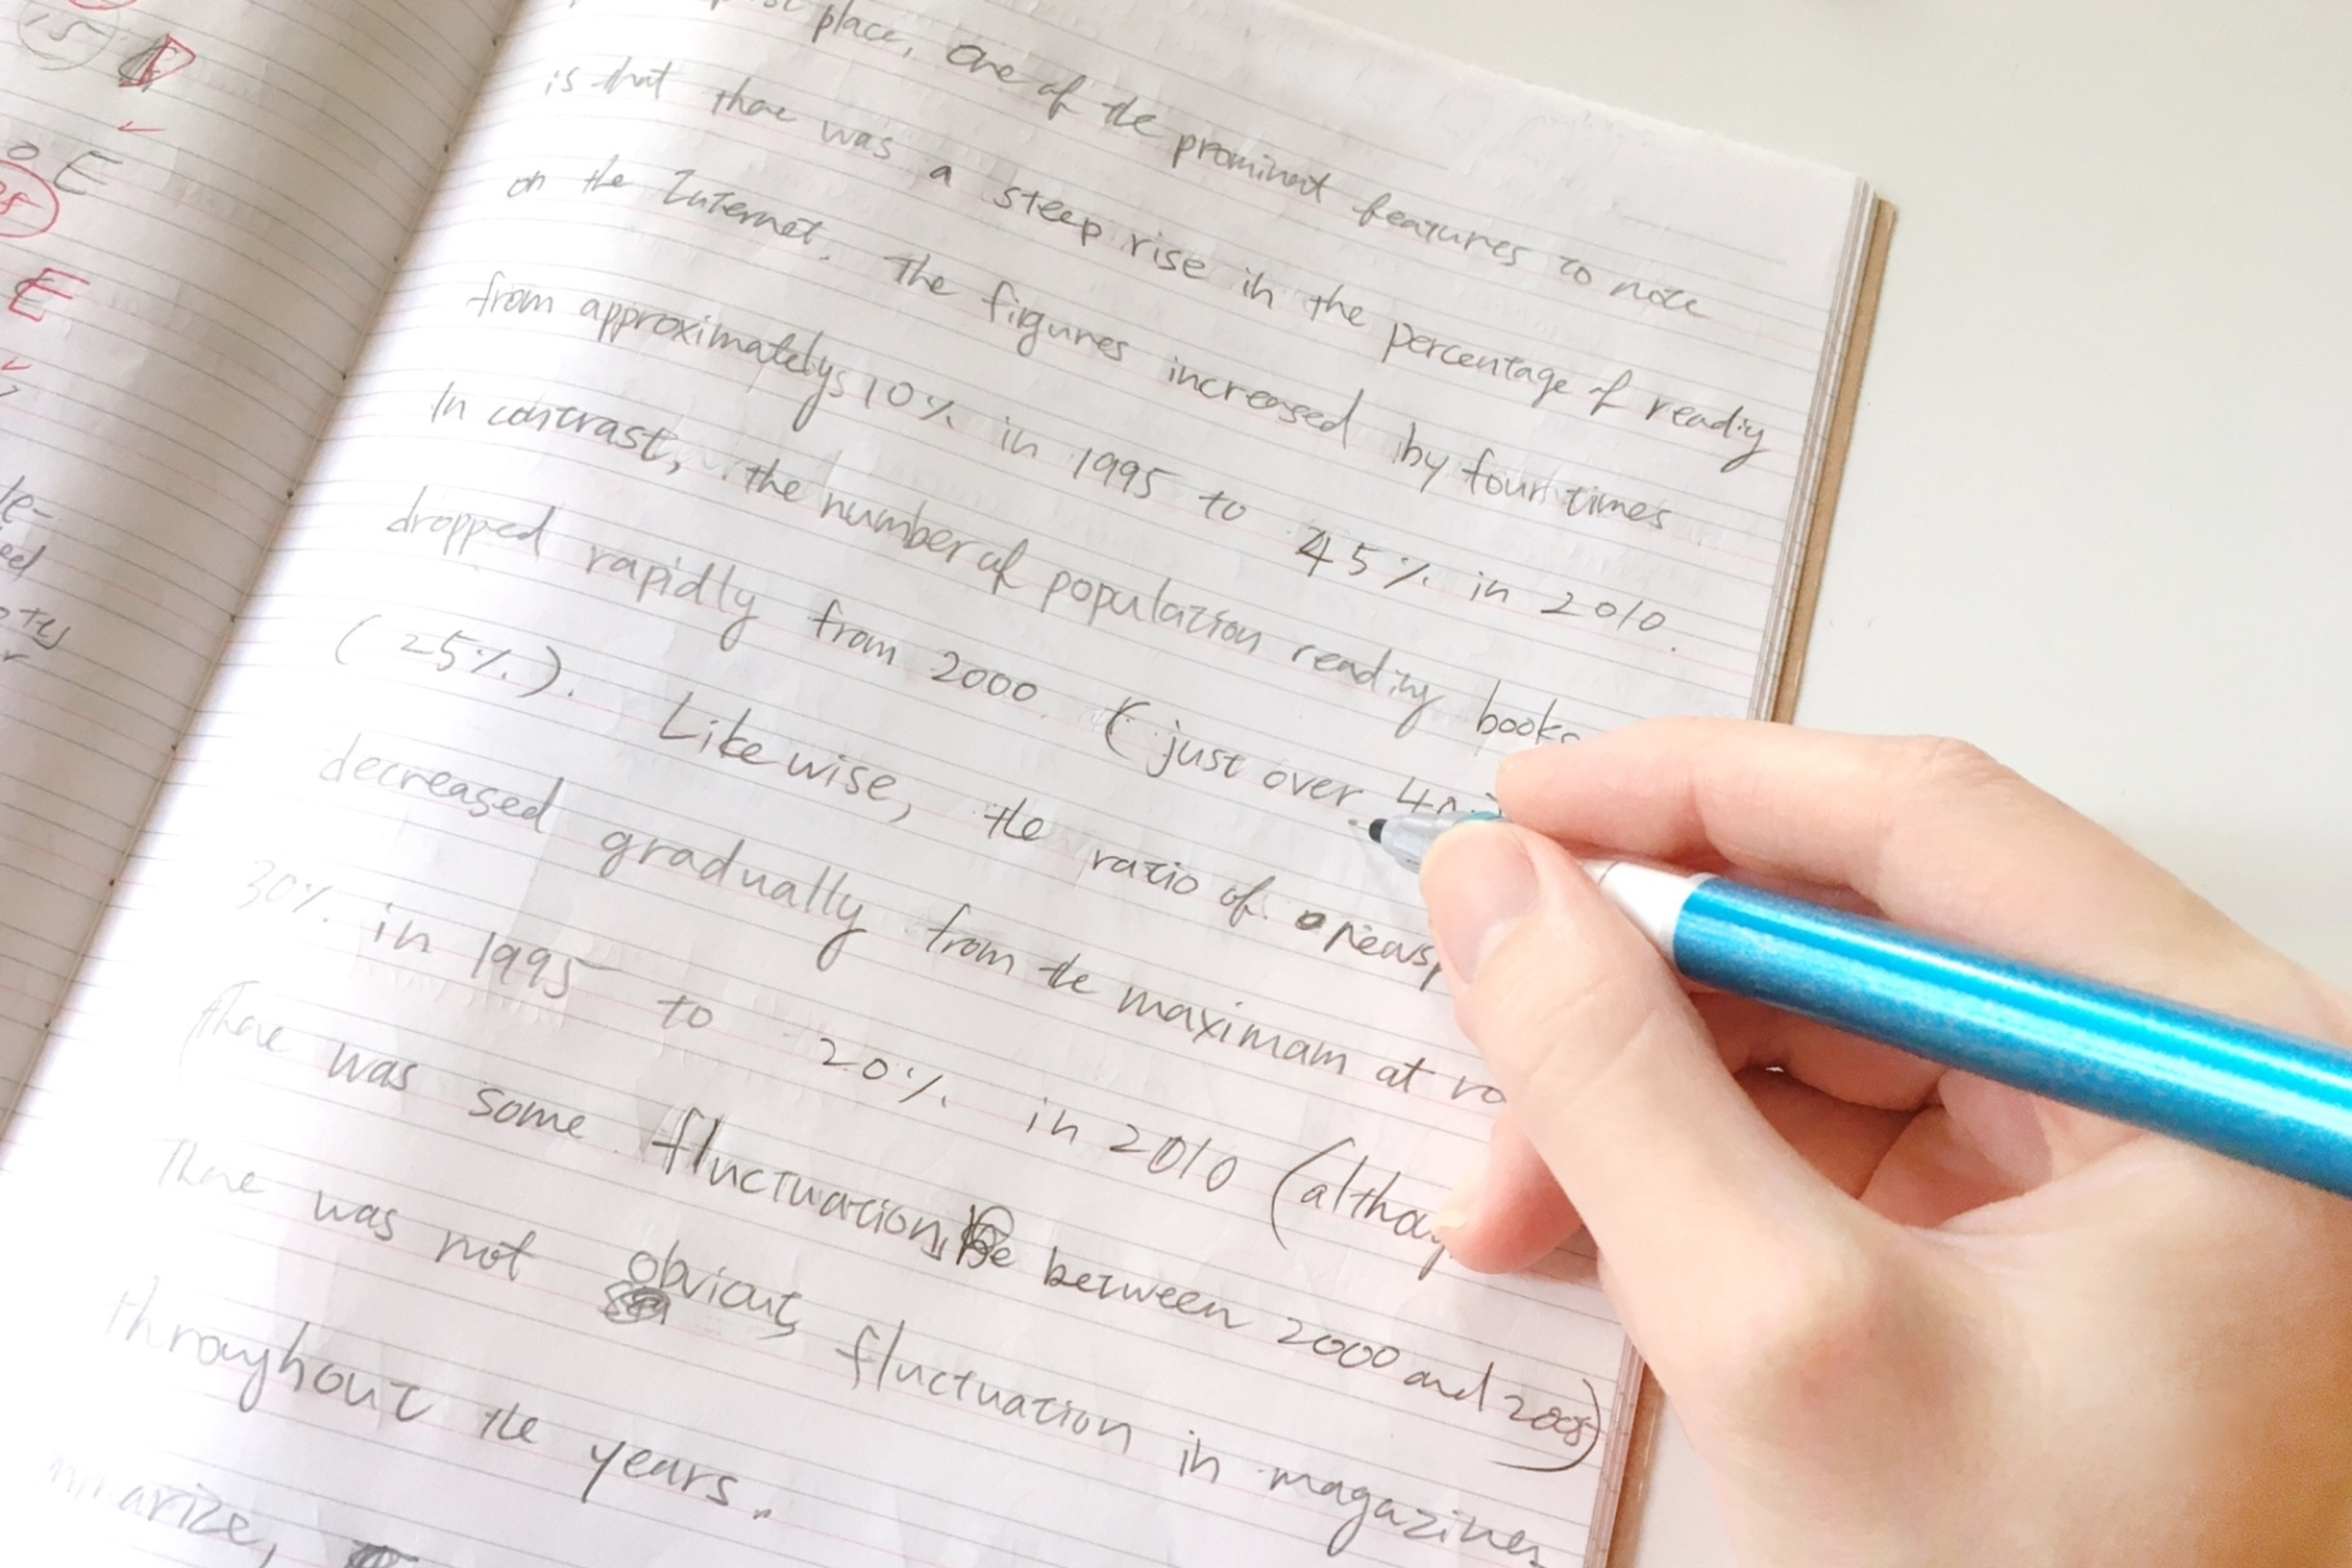 place, One of the prominent features to note
is that there was a steep rise in the percentage of reading
on the Internet. The figures increased by four times
from approximatelys 10% in 1995 to 45% in 2010.
In contrast, the number of population reading books
dropped rapidly from 2000 (just over
(25%). Likewise, the ratio of
decreased gradually from the maximam at
30% in 1995 to 20% in 2010 (
there was some fluctuation between 2000 and 2005)
There was not obvious fluctuation in magazines
throughout the years.
E
E